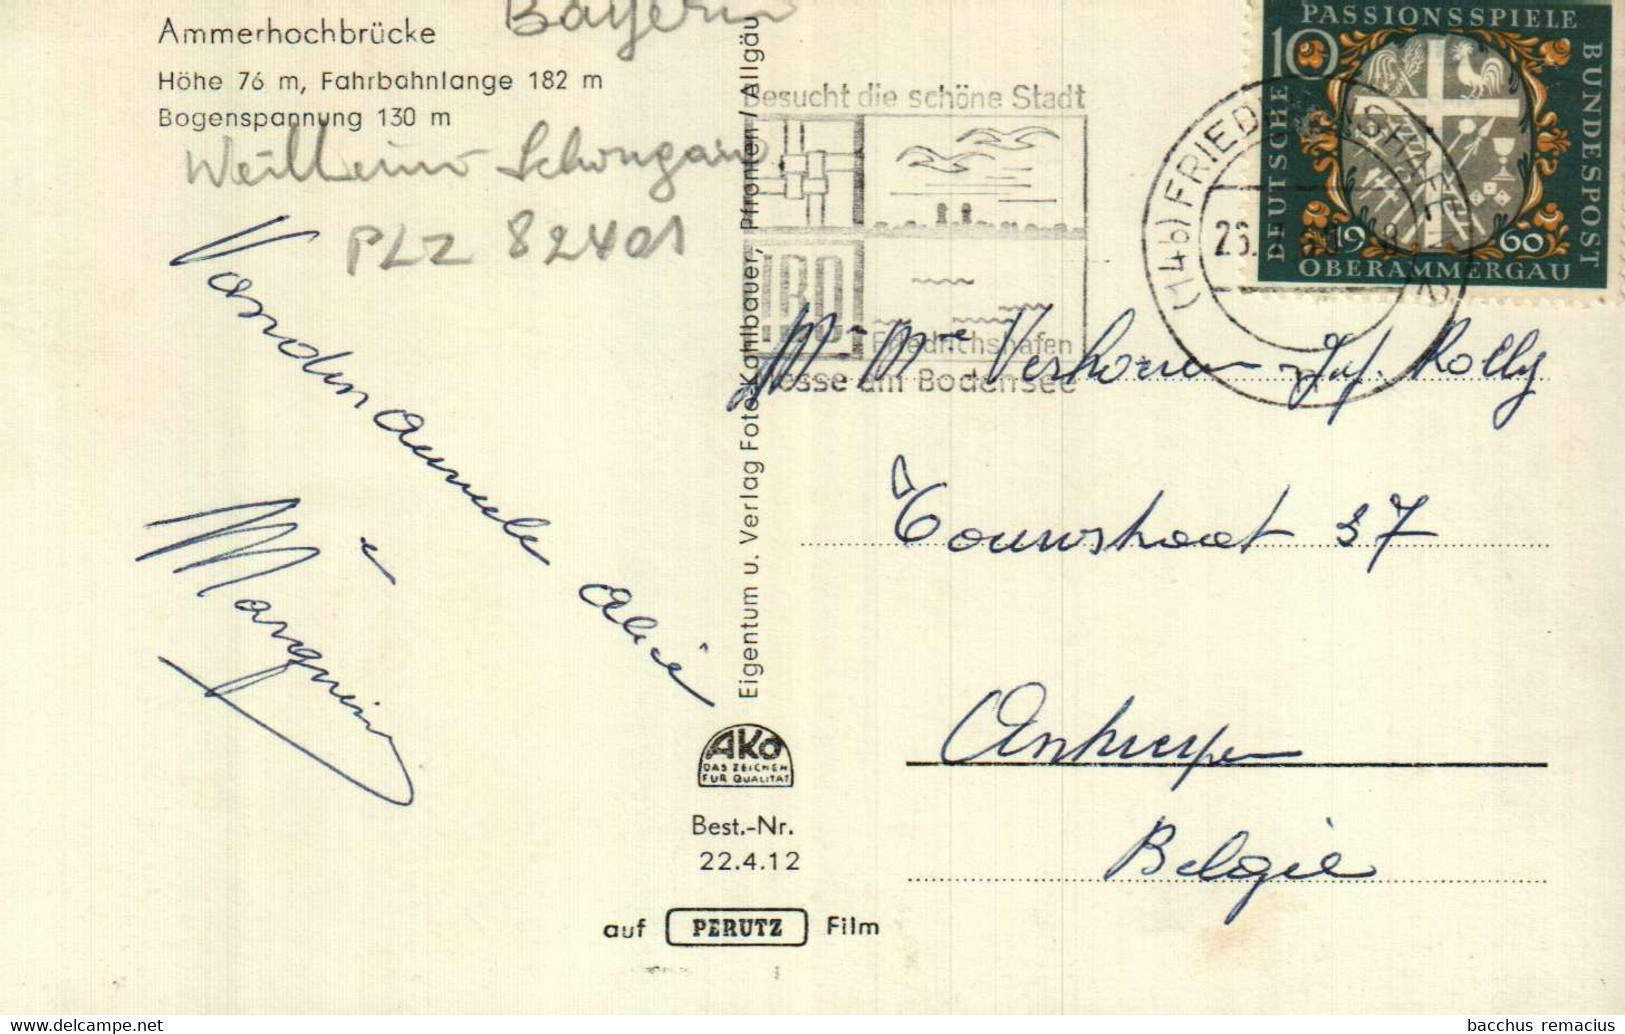 Ammerhochbrücke
Höhe 76 m, Fahrbahnlange 182 m
Bogenspannung 130 m
Bayern
Weilheim Schongau
PLZ 82401
Eigentum u. Verlag Foto-Kahlbauer, Pfronten/Allgäu
AKO
DAS ZEICHEN
FÜR QUALITÄT
Best.-Nr.
22.4.12
auf PERUTZ Film
Besucht die schöne Stadt
IBO
Friedrichshafen
Messe am Bodensee
(14b) FRIEDRICHSHAFEN
26.
PASSIONSSPIELE
10
DEUTSCHE
BUNDESPOST
19 60
OBERAMMERGAU
Mr Mme Verhoeven Jef. Rolly
37
Antwerpen
België
bacchus remacius